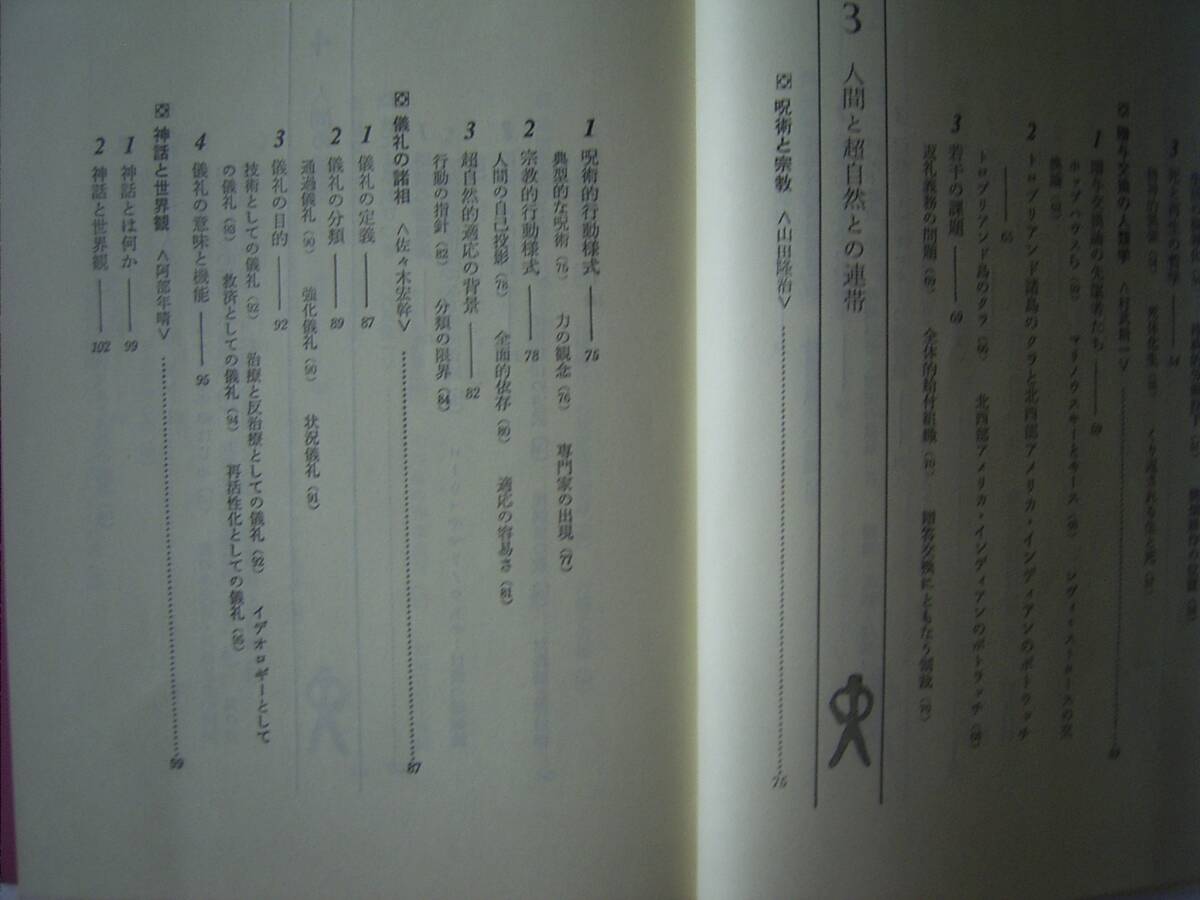 3
贈与交換の人類学
1 贈与交換論の先駆者たち 59
2 トロブリアンド諸島のクラと北西部アメリカ・インディアンのポトラッチ
65
トロブリアンド島のクラ 北西部アメリカ・インディアンのポトラッチ
3 若干の課題 69
返礼義務の問題 全体的給付組織
3 人間と超自然との連帯
呪術と宗教 <山田隆治> 75
1 呪術的行動様式 75
典型的な呪術(76) 力の観念(76) 専門家の出現(77)
2 宗教的行動様式 78
人間の自己投影(78) 全面的依存(80) 適応の容易さ(81)
3 超自然的適応の背景 82
行動の指針(82) 分類の限界(84)
儀礼の諸相 <佐々木宏幹> 87
1 儀礼の定義 87
2 儀礼の分類 89
通過儀礼(90) 強化儀礼(90) 状況儀礼(91)
3 儀礼の目的 92
技術としての儀礼(92) 治療と反治療としての儀礼(92) イデオロギーとして
の儀礼(93) 救済としての儀礼(94) 再活性化としての儀礼(95)
4 儀礼の意味と機能 95
神話と世界観 <阿部年晴> 99
1 神話とは何か 99
2 神話と世界観 102